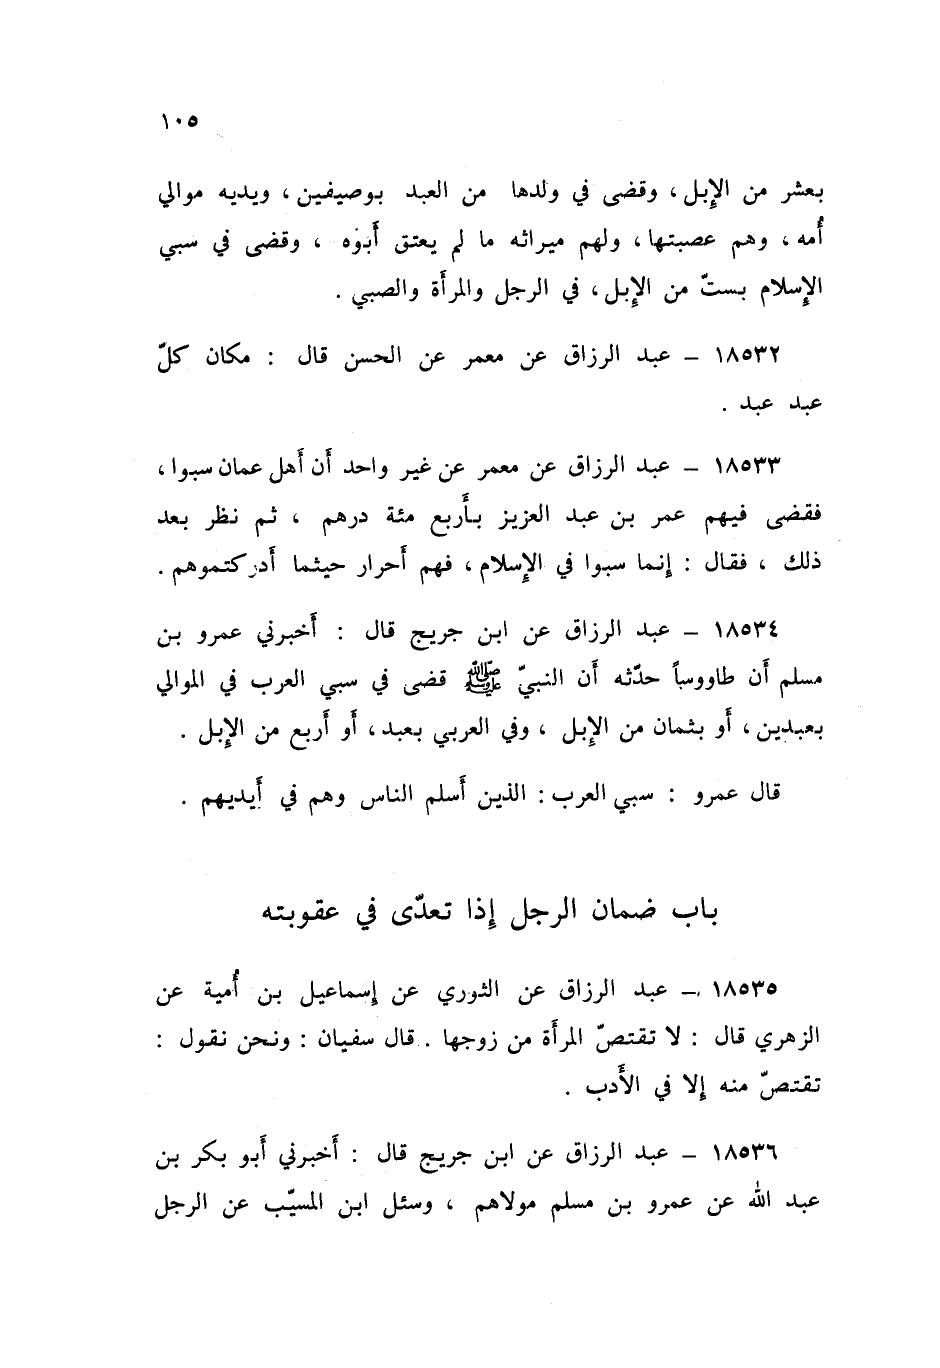 ١٠٥
بعشر من الإِبل ، وقضى في ولدها من العبد بوصيفين ، ويديه موالي
أُمه ، وهم عصبتها ، ولهم ميراثه ما لم يعتق أَبوه ، وقضى في سبي
الإِسلام بستّ من الإِبل ، في الرجل والمرأَة والصبي .
١٨٥٣٢ – عبد الرزاق عن معمر عن الحسن قال : مكان كلّ
عبد عبد .
١٨٥٣٣ – عبد الرزاق عن معمر عن غير واحد أَن أَهل عمان سبوا ،
فقضى فيهم عمر بن عبد العزيز بأَربع مئة درهم ، ثم نظر بعد
ذلك ، فقال : إِنما سبوا في الإِسلام ، فهم أَحرار حيثما أَدركتموهم .
١٨٥٣٤ – عبد الرزاق عن ابن جريج قال : أَخبرني عمرو بن
مسلم أَن طاووساً حدّثه أَن النبيّ ﷺ قضى في سبي العرب في الموالي
بعبدين ، أَو بثمان من الإِبل ، وفي العربي بعبد ، أَو أَربع من الإِبل .
قال عمرو : سبي العرب : الذين أَسلم الناس وهم في أَيديهم .
باب ضمان الرجل إِذا تعدّى في عقوبته
١٨٥٣٥ – عبد الرزاق عن الثوري عن إِسماعيل بن أُمية عن
الزهري قال : لا تقتصّ المرأَة من زوجها . قال سفيان : ونحن نقول :
تقتصّ منه إِلا في الأَدب .
١٨٥٣٦ – عبد الرزاق عن ابن جريج قال : أَخبرني أَبو بكر بن
عبد الله عن عمرو بن مسلم مولاهم ، وسئل ابن المسيّب عن الرجل